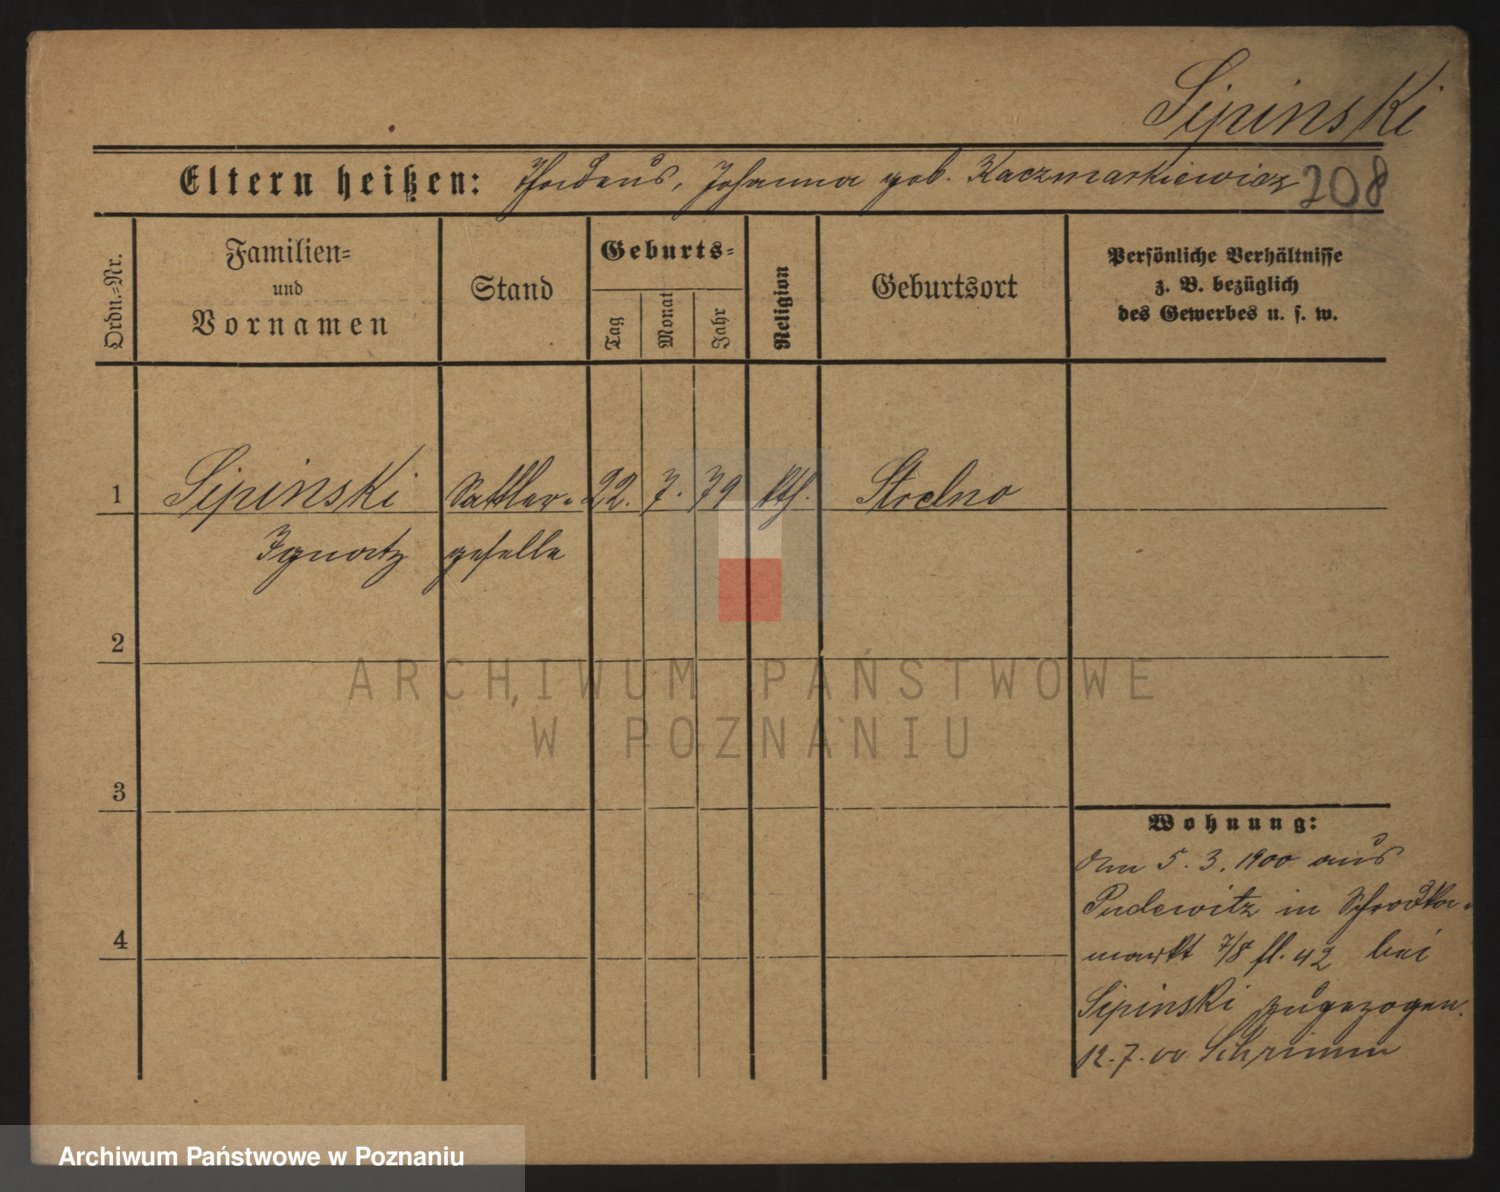 Sipinski
Eltern heißen: Thadeus, Johanna geb. Kaczmarkiewicz 208
Ordn.=Nr.
Familien=
und
Vornamen
Stand
Geburts=
Tag
Monat
Jahr
Religion
Geburtsort
Persönliche Verhältnisse
z. B. bezüglich
des Gewerbes u. s. w.
1 Sipinski Sattler= 22. 7. 79 kth. Strelno
Ignatz geselle
2
3
4
Wohnung:
Den 5. 3. 1900 aus
Pudewitz in Schrodka=
markt 7/8 fl. 42 bei
Sipinski zugezogen.
12. 7. 00 Schrimm
ARCHIWUM PAŃSTWOWE
W POZNANIU
Archiwum Państwowe w Poznaniu